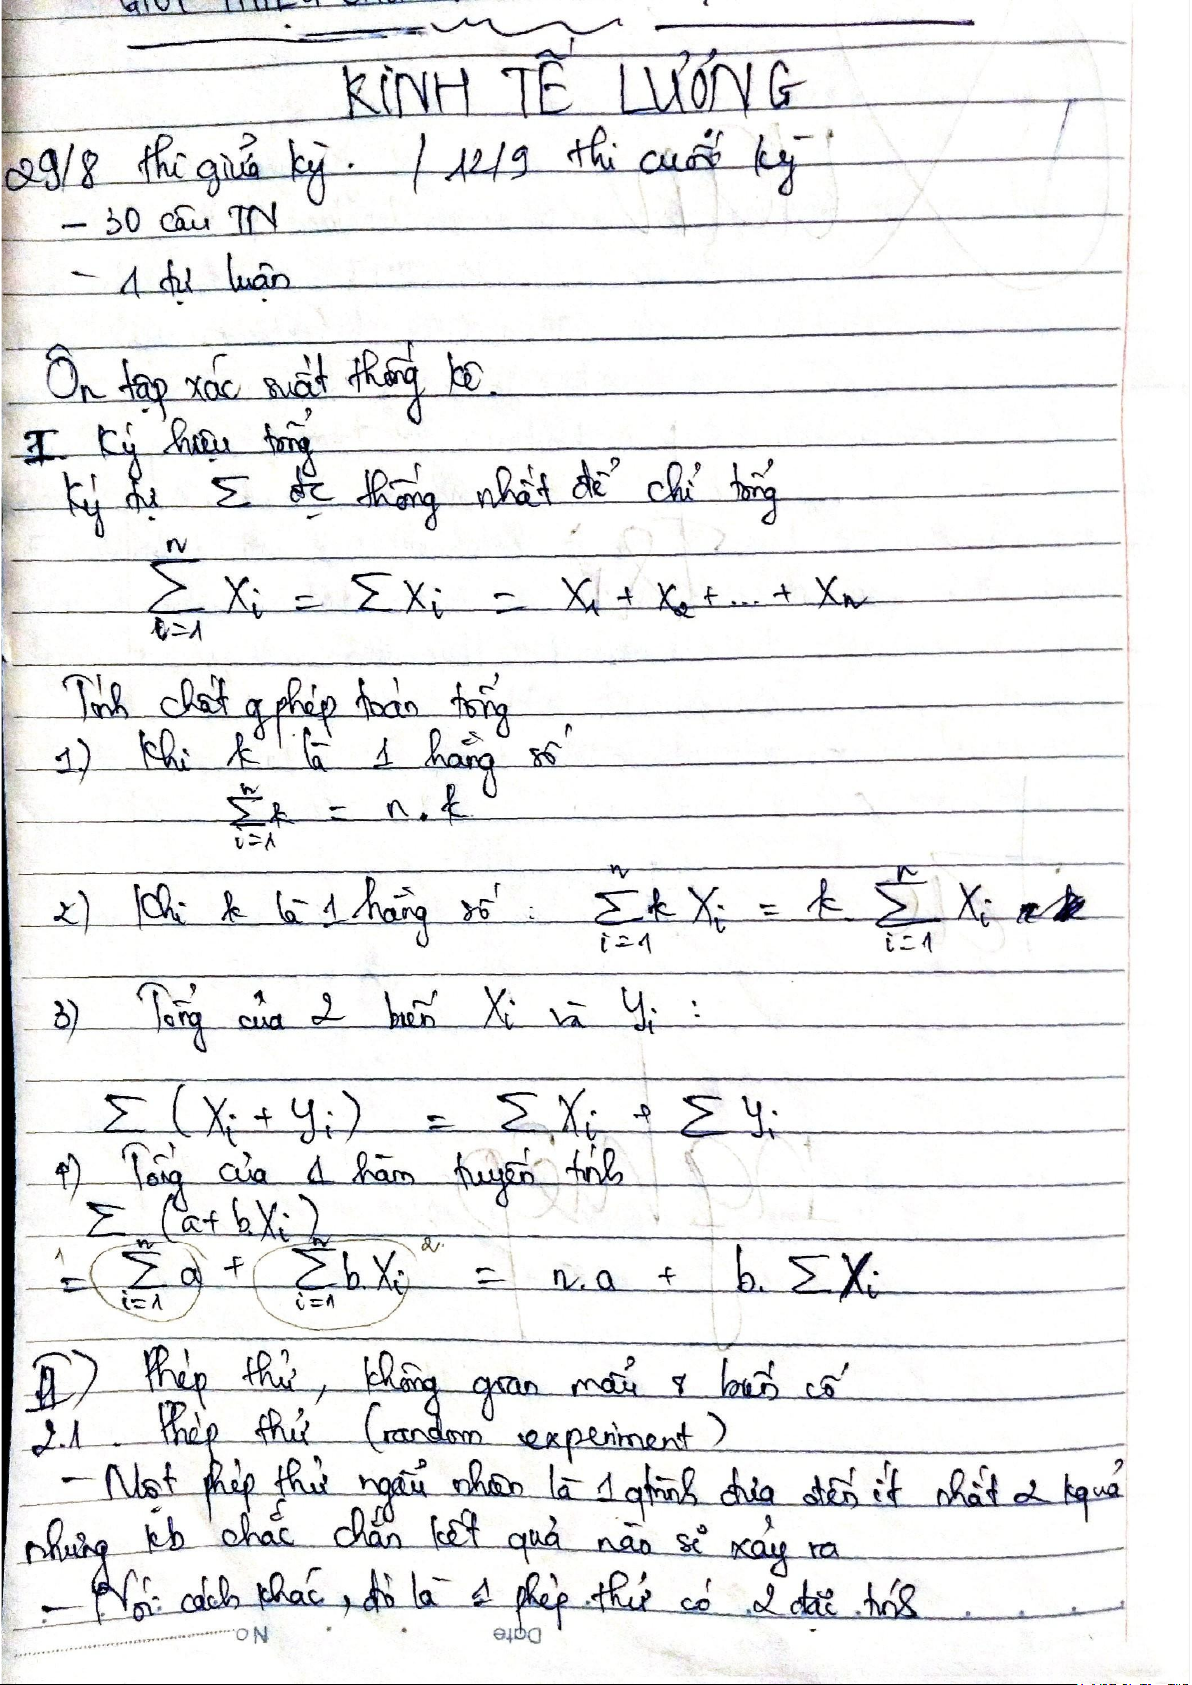 KINH TẾ LƯỢNG
29/8 thi giữa kỳ. / 12/9 thi cuối kỳ
- 30 câu TN
- 1 tự luận
Ôn tập xác suất thống kê.
I. Ký hiệu tổng
Ký tự Σ đc thống nhất để chỉ tổng
n
Σ Xi = Σ Xi = X1 + X2 + ... + Xn
i=1
Tính chất q phép toán tổng
1) Khi k là 1 hằng số
n
Σ k = n.k
i=1
2) Khi k là 1 hằng số : Σ(i=1, n) k Xi = k Σ(i=1, n) Xi
3) Tổng của 2 biến Xi và Yi :
Σ (Xi + Yi) = Σ Xi + Σ Yi
4) Tổng của 1 hàm tuyến tính
Σ (a + b.Xi)
= Σ(i=1, n) a + Σ(i=1, n) b.Xi = n.a + b. Σ Xi
1 2
II) Phép thử, không gian mẫu & biến cố
2.1. Phép thử (random experiment)
- Một phép thử ngẫu nhiên là 1 qtrình đưa đến ít nhất 2 kquả
nhưng kb chắc chắn kết quả nào sẽ xảy ra
- Nói cách khác, đó là 1 phép thử có 2 đặc tính
No Date